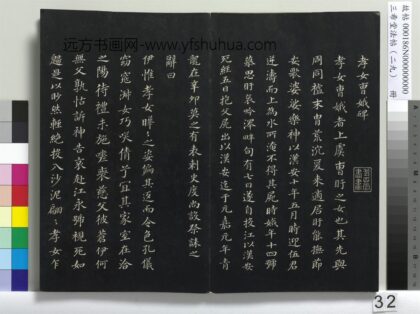 远方书画网-www.yfshuhua.com
故帖 000186N000000000
三希堂法帖(二九) 冊
孝女曹娥碑
孝女曹娥者上虞曹盱之女也其先與
周同祖末冑荒沉爰来適居盱能撫節
安歌婆娑樂神以漢安二年五月時迎伍君
逆濤而上為水所淹不得其屍時娥年十四號
慕思盱哀吟澤畔旬有七日遂自投江
死經五日抱父屍出以漢安迄于元嘉元年青
龍在辛卯莫之有表度尚設祭誄之
辭曰
伊惟孝女曄〻之姿偏其返而令色孔儀
窈窕淑女巧笑倩兮宜其家室在洽
之陽待禮未施嗟喪慈父彼蒼伊何
無父孰怙訴神告哀赴江永號視死如
歸是以眇然輕絕投入沙泥翩〻孝女乍
32